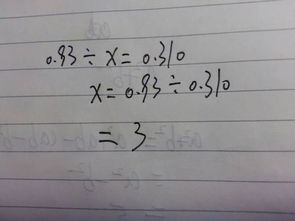 0.93÷x=0.310
x=0.93÷0.310
=3